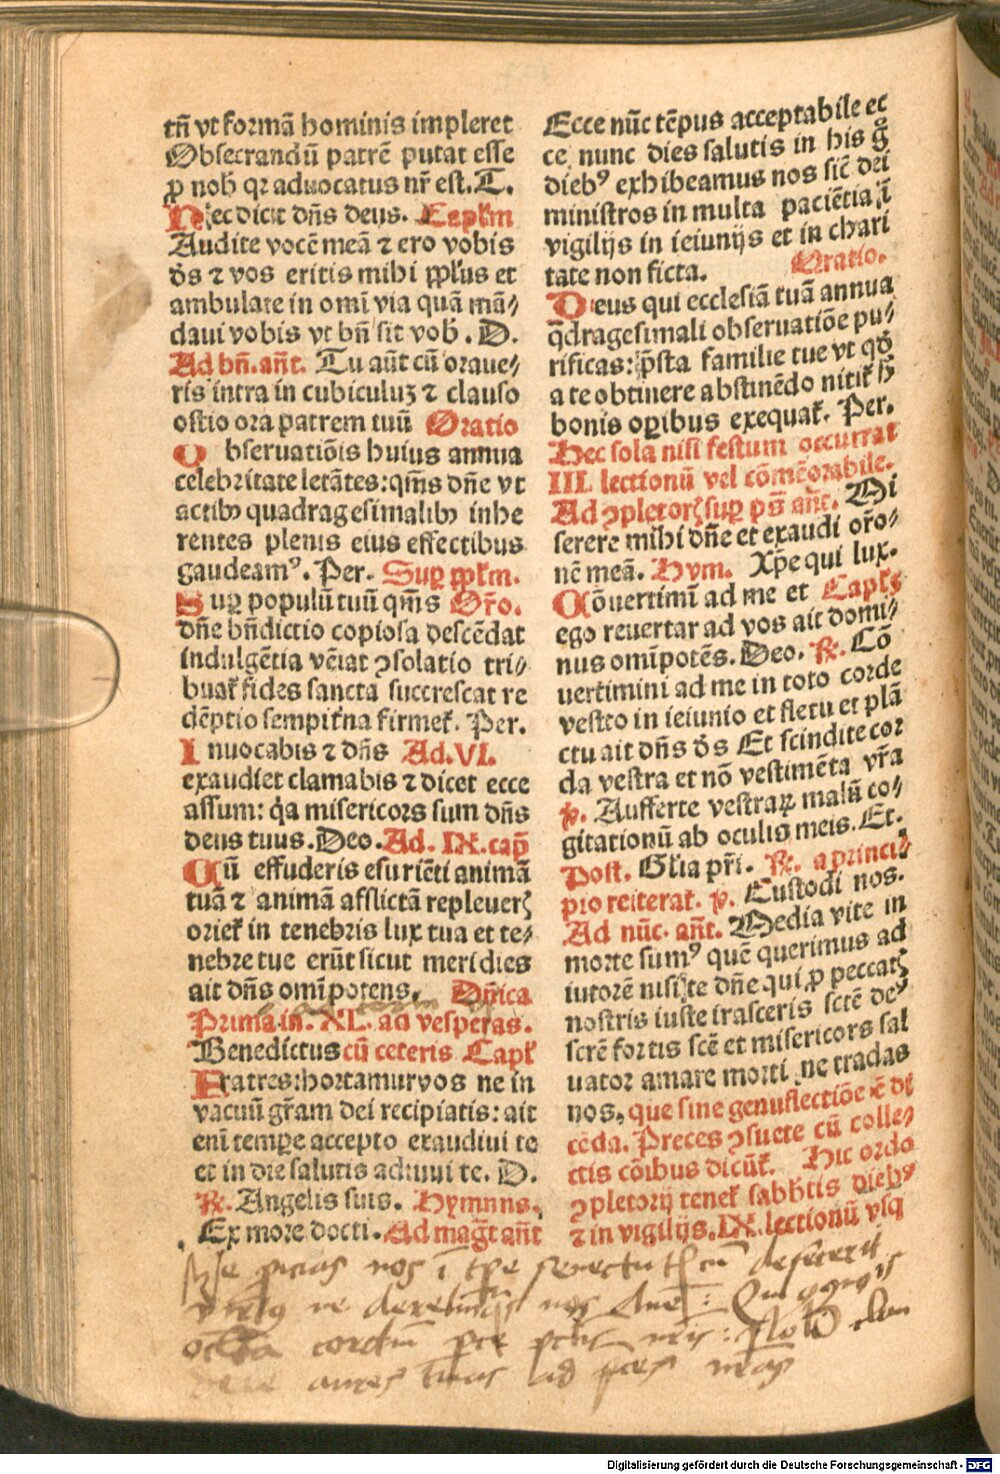 tñ vt formã hominis impleret
Obsecrandũ patrẽ putat esse
ꝓ nob̃ qꝛ aduocatus nr̃ est. T.
Hec dicit dñs deus. Capłm
Audite vocẽ meã ⁊ ero vobis
ds̃ ⁊ vos eritis mihi ppłus et
ambulate in omĩ via quã mã⸗
daui vobis vt bñ sit vob̃. D.
Ad bñ. añt. Tu aũt cũ oraue⸗
ris intra in cubiculuꝫ ⁊ clauso
ostio ora patrem tuũ Oratio
Obseruatiõis huius annua
celebritate letãtes: qm̃s dñe vt
actibꝰ quadragesimalibꝰ inhe
rentes plenis eius effectibus
gaudeamꝰ. Per. Suꝑ ppłm.
Suꝑ populũ tuũ qm̃s Or̃o.
dñe bñdictio copiosa descẽdat
indulgẽtia vẽiat ꝯsolatio tri⸗
buat̃ fides sancta succrescat re
dẽptio sempit̃na firmet̃. Per.
Inuocabis ⁊ dñs Ad. VI.
exaudiet clamabis ⁊ dicet ecce
assum: q̃a misericors sum dñs
deus tuus. Deo. Ad. IX. cap̃
Cũ effuderis esuriẽti animã
tuã ⁊ animã afflictã repleuerꝭ
oriet̃ in tenebris lux tua et te⸗
nebre tue erũt sicut meridies
ait dñs omĩpotens. Dñica
Prima in. XL. ad vesperas.
Benedictus cũ ceteris Capł
Fratres: hortamur vos ne in
vacuũ gr̃am dei recipiatis: ait
enĩ tempe accepto exaudiui te
et in die salutis adiuui te. D.
℟. Angelis suis. Hymnus.
Ex more docti. Ad mag̃t añt
Ecce nũc tẽpus acceptabile ec
ce nunc dies salutis in his g̊
diebꝰ exhibeamus nos sic̃ dei
ministros in multa paciẽtia ĩ
vigilijs in ieiunijs et in chari
tate non ficta. Oratio.
Deus qui ecclesiã tuã annua
q̃dragesimali obseruatiõe pu⸗
rificas: p̃sta familie tue vt qd̃
a te obtinere abstinẽdo nitit̃ h̃
bonis oꝑibus exequat̃. Per.
Hec sola nisi festum occurrat
III. lectionũ vel cõmẽorabile.
Ad ꝯpletorꝭ suꝑ ps̃ añt. Mi
serere mihi dñe et exaudi or̃o⸗
nẽ meã. Hym. Xp̃e qui lux.
Cõuertimĩ ad me et Capłꝫ
ego reuertar ad vos ait domi⸗
nus omĩpotẽs. Deo. ℟. Cõ
uertimini ad me in toto corde
vestro in ieiunio et fletu et plã
ctu ait dñs ds̃ Et scindite cor
da vestra et nõ vestimẽta vr̃a
℣. Aufferte vestrarꝫ malũ co⸗
gitationũ ab oculis meis. Et.
Post. Glia pr̃i. ℟. a princi⸗
pio reiterat̃. ℣. Custodi nos.
Ad nũc. añt. Media vite in
morte sumꝰ quẽ querimus ad
iutorẽ nisi te dñe qui ꝓ peccatꝭ
nostris iuste irasceris sctẽ deꝰ
sctẽ fortis scẽ et misericors sal
uator amare morti ne tradas
nos. que sine genuflectiõe ẽ di
cẽda. Preces ꝯsuete cũ colle⸗
ctis cõibus dicũt̃. Hic ordo
ꝯpletorij tenet̃ sabb̃tis diebꝰ
⁊ in vigilijs. IX. lectionũ vsq
Ne ꝓicias nos ĩ tp̃e senectut cũ defecerit
virtꝰ ne derelinq̃s nos dñe: Qui ꝯgnoscis
occlta cordiũ pce pctis nris: Noli clau
dere aures tuas ad pces nr̃as